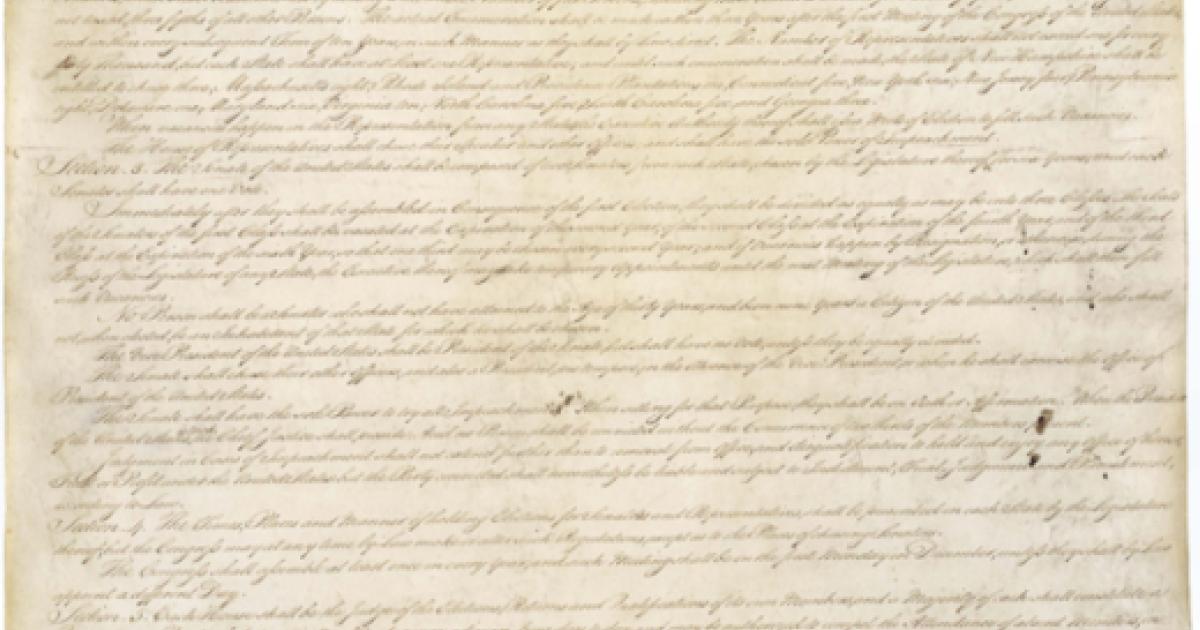 and within every subsequent Term of ten Years, in such Manner as they shall by Law direct. The Number of Representatives shall not exceed one for every
thirty Thousand, but each State shall have at Least one Representative; and until such enumeration shall be made, the State of New Hampshire shall be
entitled to chuse three, Massachusetts eight, Rhode Island and Providence Plantations one, Connecticut five, New York six, New Jersey four, Pennsylvania
eight, Delaware one, Maryland six, Virginia ten, North Carolina five, South Carolina five, and Georgia three.
When vacancies happen in the Representation from any State, the Executive Authority thereof shall issue Writs of Election to fill such Vacancies.
The House of Representatives shall chuse their Speaker and other Officers; and shall have the sole Power of Impeachment.
Section. 3. The Senate of the United States shall be composed of two Senators from each State, chosen by the Legislature thereof, for six Years; and each
Senator shall have one Vote.
Immediately after they shall be assembled in Consequence of the first Election, they shall be divided as equally as may be into three Classes. The Seats
of the Senators of the first Class shall be vacated at the Expiration of the second Year, of the second Class at the Expiration of the fourth Year, and of the third
Class at the Expiration of the sixth Year, so that one third may be chosen every second Year; and if Vacancies happen by Resignation, or otherwise, during the
Recess of the Legislature of any State, the Executive thereof may make temporary Appointments until the next Meeting of the Legislature, which shall then fill
such Vacancies.
No Person shall be a Senator who shall not have attained to the Age of thirty Years, and been nine Years a Citizen of the United States, and who shall
not, when elected, be an Inhabitant of that State for which he shall be chosen.
The Vice President of the United States shall be President of the Senate, but shall have no Vote, unless they be equally divided.
The Senate shall chuse their other Officers, and also a President pro tempore, in the Absence of the Vice President, or when he shall exercise the Office of
President of the United States.
The Senate shall have the sole Power to try all Impeachments. When sitting for that Purpose, they shall be on Oath or Affirmation. When the President
of the United States is tried, the Chief Justice shall preside: And no Person shall be convicted without the Concurrence of two thirds of the Members present.
Judgment in Cases of Impeachment shall not extend further than to removal from Office, and disqualification to hold and enjoy any Office of honor,
Trust or Profit under the United States: but the Party convicted shall nevertheless be liable and subject to Indictment, Trial, Judgment and Punishment,
according to Law.
Section. 4. The Times, Places and Manner of holding Elections for Senators and Representatives, shall be prescribed in each State by the Legislature
thereof; but the Congress may at any time by Law make or alter such Regulations, except as to the Places of chusing Senators.
The Congress shall assemble at least once in every Year, and such Meeting shall be on the first Monday in December, unless they shall by Law
appoint a different Day.
Section. 5. Each House shall be the Judge of the Elections, Returns and Qualifications of its own Members, and a Majority of each shall constitute a